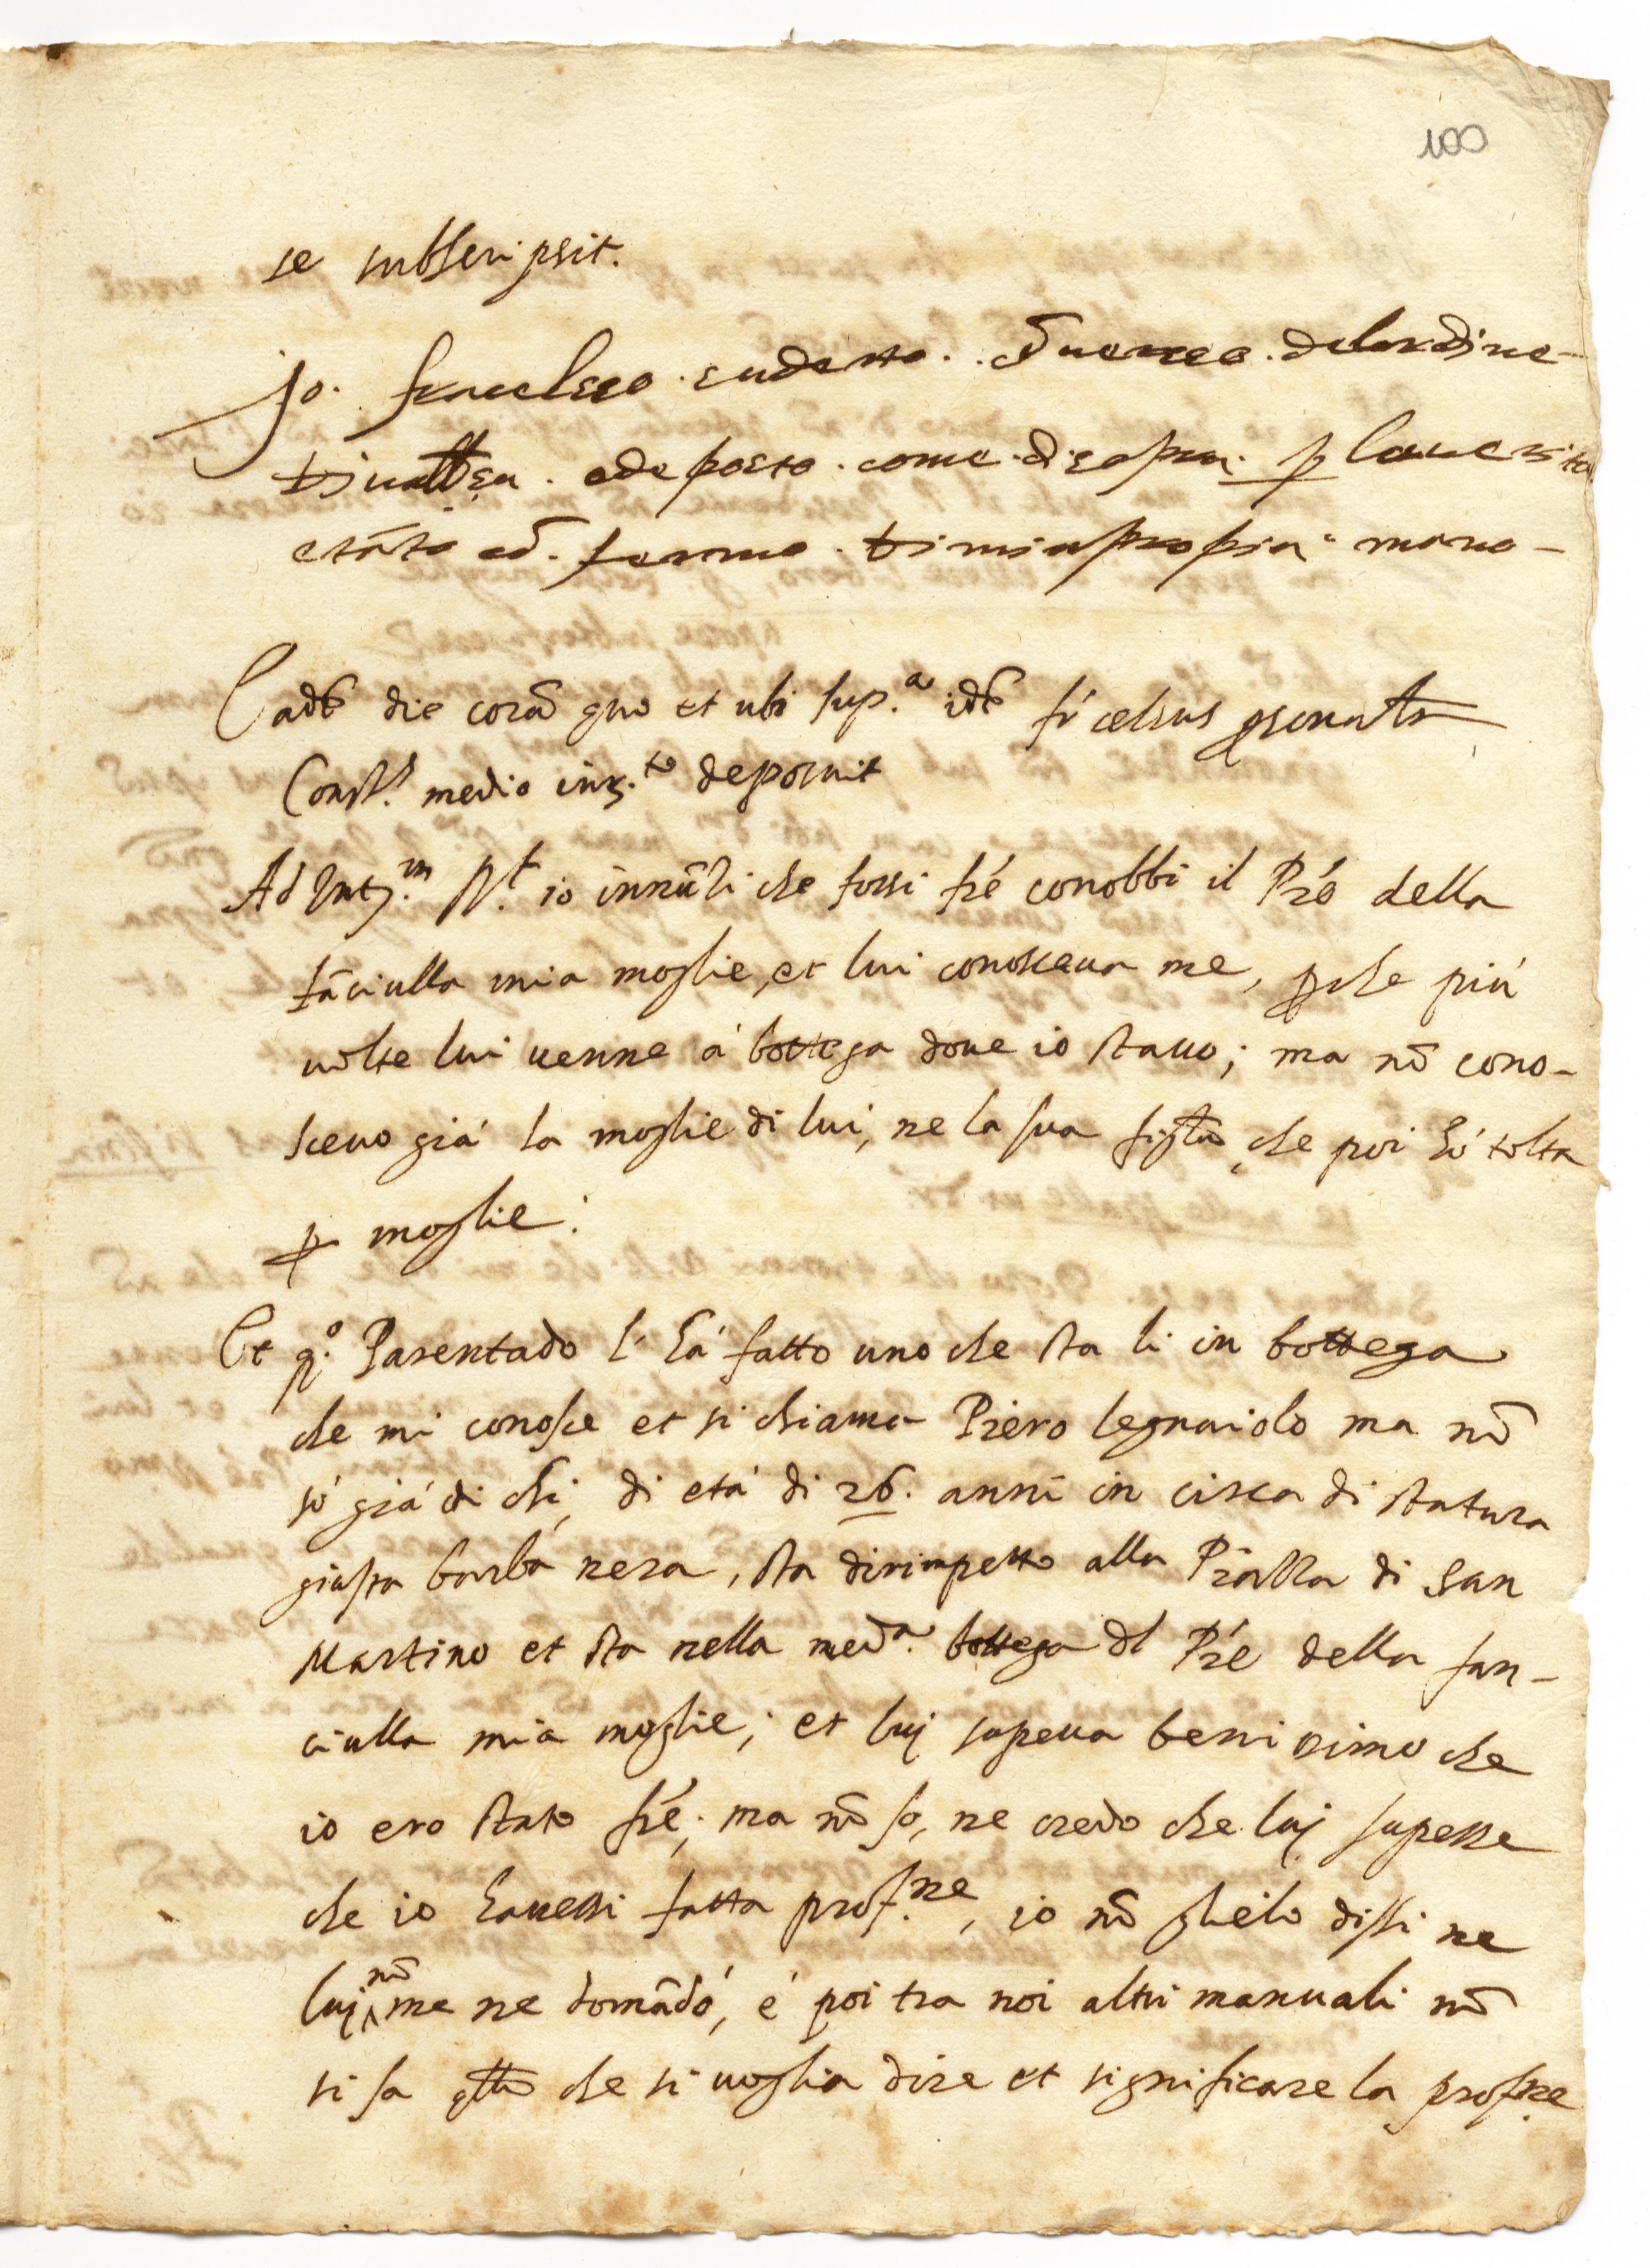 100
se subscripsit.
Jo. fracelseo. sudetto. Duoneo. delordine
di uallosa. o deposto. come. disopra. p laverita
etāto cō. fermo. di mia propria mano
Eadē die corā quo et ubi sup.ª idē fr̄ celsus psonalr
Const.s medio iur.to deposuit
Ad Int.m Rt. io innāzi che fossi fr̄e conobbi il Pr̄e della
fāciulla mia moglie, et lui conosceua me, pche piu
uolte lui uenne à bottega doue io stauo; ma nō cono-
sceuo già la moglie di lui, ne la sua figlia, che poi hò tolta
p moglie.
Et q.º Parentado l'hà fatto uno che sta li in bottega
che mi conosce et si chiama Piero legnaiolo ma nō
sò già di chi, di età di 26. anni in circa di statura
giusta barba nera, sta dirimpetto alla Piazza di San
Martino et sta nella med.ª bottega dl Pr̄e della fan-
ciulla mia moglie; et luj sapeua benissimo che
io ero stato fr̄e; ma nō so, ne credo che luj sapesse
che io hauessi fatta prof.ne, io nō glielo dissi ne
luj nō me ne domādò, è poi tra noi altri manuali nō
si sa qllo che si uoglia dire et significare la prof.ne